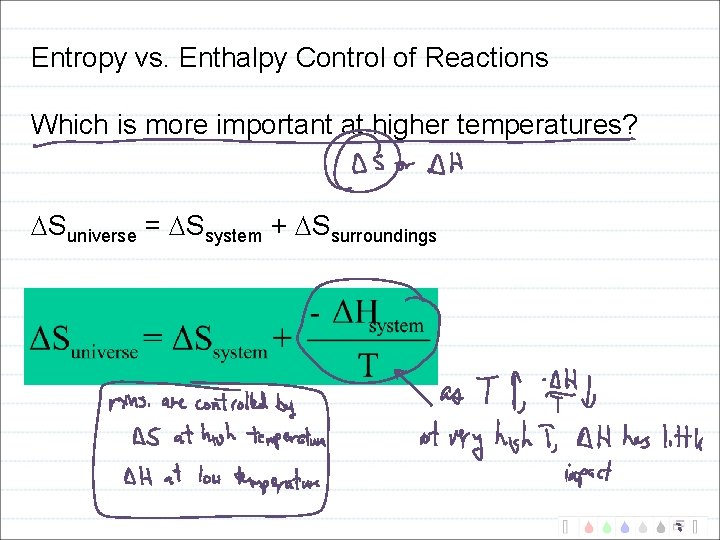 Entropy vs. Enthalpy Control of Reactions
Which is more important at higher temperatures?
ΔS or ΔH
∆Suniverse = ∆Ssystem + ∆Ssurroundings
ΔSuniverse = ΔSsystem + - ΔHsystem / T
as T ↑, -ΔH/T ↓
rxns. are controlled by
ΔS at high temperature
ΔH at low temperature
at very high T, ΔH has little
impact